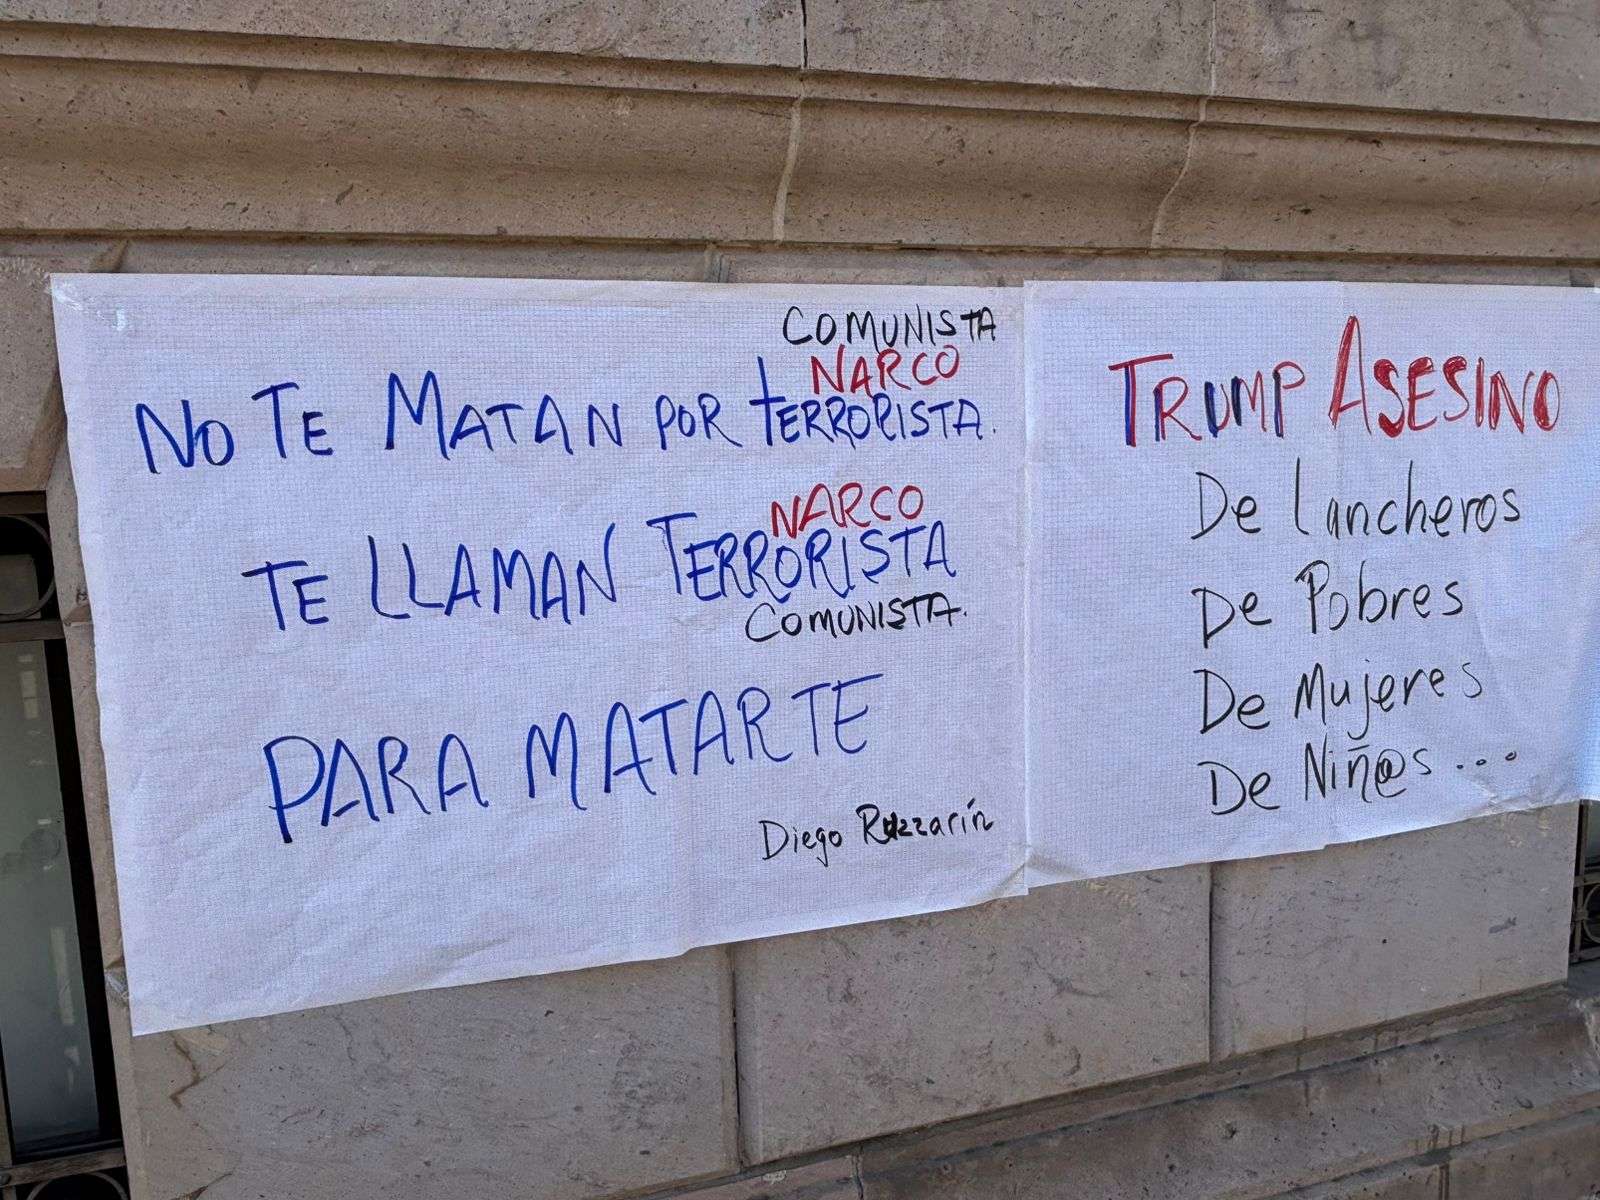 COMUNISTA
NARCO
NO TE MATAN POR TERRORISTA.
NARCO
TE LLAMAN TERRORISTA
COMUNISTA.
PARA MATARTE
Diego Ruzzarín
TRUMP ASESINO
De Lancheros
De Pobres
De Mujeres
De Niñ@s ...